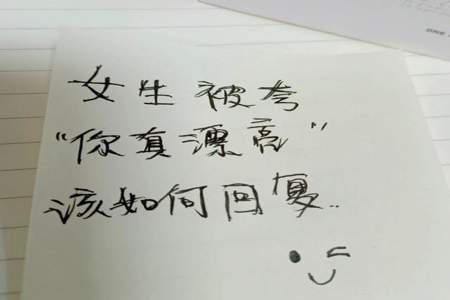 女生被夸
“你真漂亮”
该如何回复..